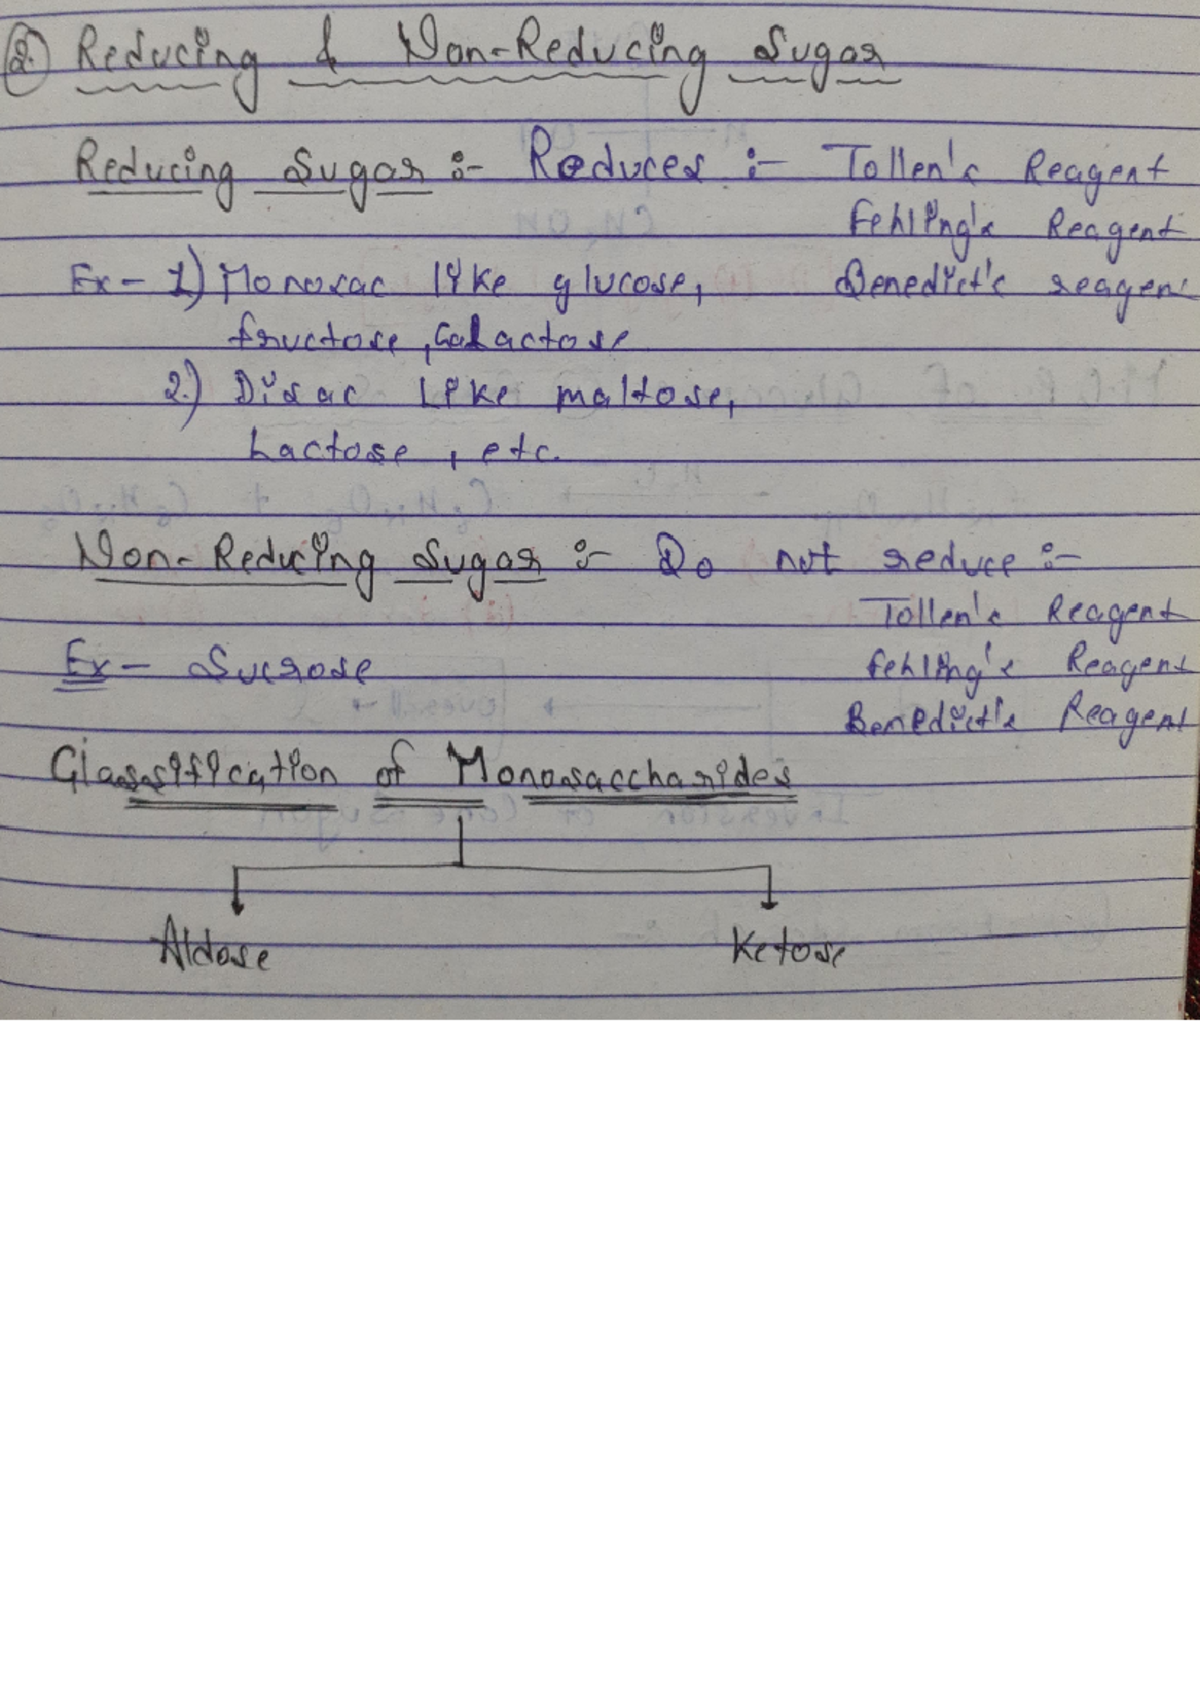 2. Reducing & Non-Reducing Sugar
Reducing Sugar :- Reduces :- Tollen's Reagent
Fehling's Reagent
Ex - 1) Monosac like glucose, Benedict's reagent
fructose, Galactose
2.) Disac like maltose,
Lactose, etc.
Non-Reducing Sugar :- Do not reduce :-
Tollen's Reagent
Ex - Sucrose Fehling's Reagent
Benedict's Reagent
Classification of Monosaccharides
Aldose Ketose